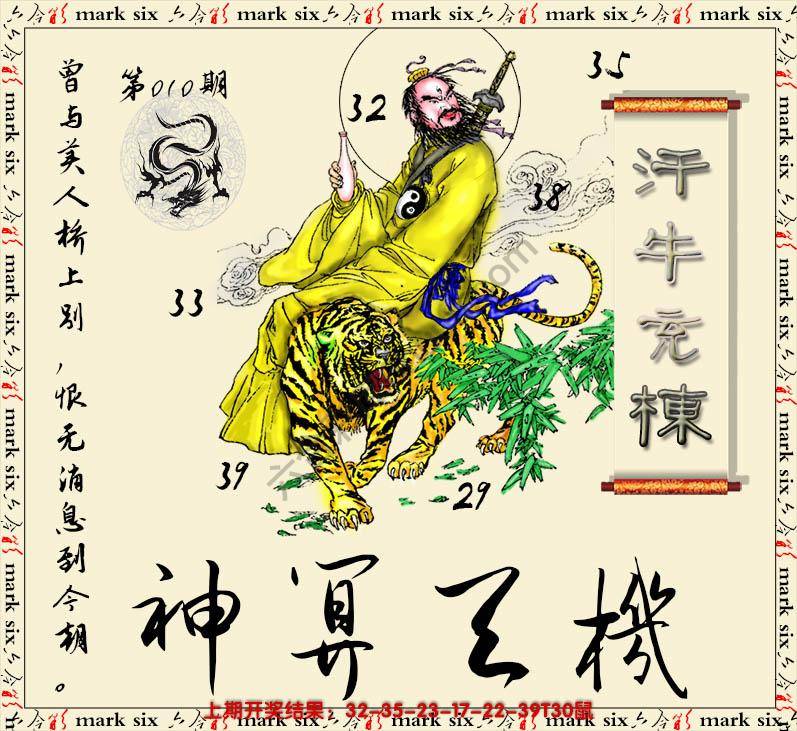 六合彩 mark six 六合彩 mark six 六合彩 mark six 六合彩 mark six 六合彩 mark six
第010期
曾与美人桥上别，恨无消息到今朝。
35
32
38
33
39
29
汗牛充棟
神算天機
上期开奖结果：32-35-23-17-22-39T30鼠
mark six 六合彩 mark six 六合彩 mark six 六合彩 mark six 六合彩 mark six